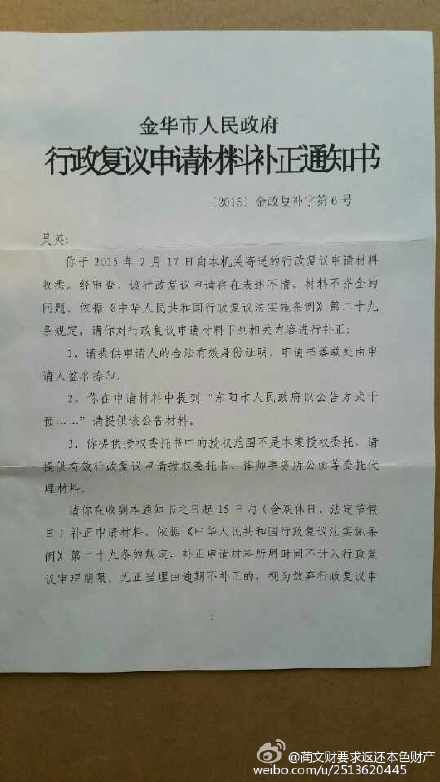 金华市人民政府
行政复议申请材料补正通知书
〔2015〕金政复补字第6号
吴英:
你于2015年2月17日向本机关寄送的行政复议申请材料
收悉。经审查，该行政复议申请存在表述不清、材料不齐全的
问题。依据《中华人民共和国行政复议法实施条例》第二十九
条规定，请你对行政复议申请材料下列相关内容进行补正：
1、请提供申请人的合法有效身份证明，申请书落款处由申
请人签名捺印。
2、你在申请材料中提到“东阳市人民政府以公告方式干
预……”请提供该公告材料。
3、你提供授权委托书中的授权范围不是本案授权委托，请
提供有效行政复议申请授权委托书、律师事务所公函等委托代
理材料。
请你在收到本通知书之日起15日内（含双休日、法定节假
日）补正申请材料。依据《中华人民共和国行政复议法实施条
例》第二十九条的规定，补正申请材料所用时间不计入行政复
议审理期限，无正当理由逾期不补正的，视为放弃行政复议申
@蔺文财要求返还本色财产
weibo.com/u/2513620445